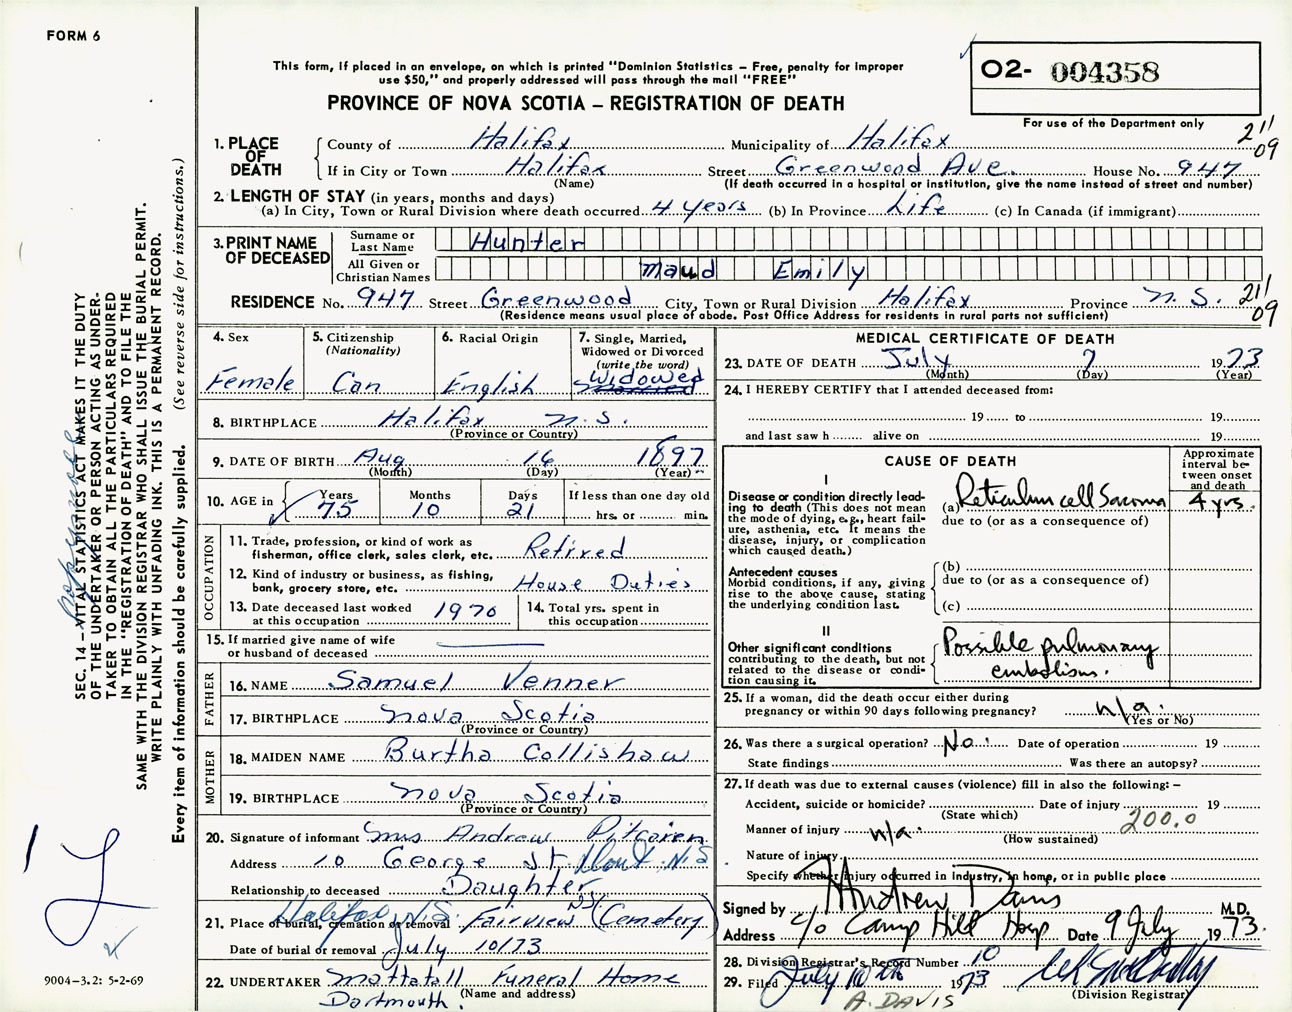 FORM 6
This form, if placed in an envelope, on which is printed "Dominion Statistics – Free, penalty for improper
use $50," and properly addressed will pass through the mail "FREE"
PROVINCE OF NOVA SCOTIA – REGISTRATION OF DEATH
O2- 004358
For use of the Department only
211
09
1. PLACE OF DEATH
County of Halifax Municipality of Halifax
If in City or Town Halifax Street Greenwood Ave. House No. 947
(Name) (If death occurred in a hospital or institution, give the name instead of street and number)
2. LENGTH OF STAY (in years, months and days)
(a) In City, Town or Rural Division where death occurred 4 years (b) In Province Life (c) In Canada (if immigrant)
3. PRINT NAME OF DECEASED
Surname or Last Name Hunter
All Given or Christian Names Maud Emily
RESIDENCE No. 947 Street Greenwood City, Town or Rural Division Halifax Province N.S. 211
09
(Residence means usual place of abode. Post Office Address for residents in rural parts not sufficient)
4. Sex
Female
5. Citizenship
(Nationality)
Can
6. Racial Origin
English
7. Single, Married,
Widowed or Divorced
(write the word)
Widowed
8. BIRTHPLACE Halifax N.S.
(Province or Country)
9. DATE OF BIRTH Aug 16 1897
(Month) (Day) (Year)
10. AGE in Years 75 Months 10 Days 21 If less than one day old
hrs. or min.
OCCUPATION
11. Trade, profession, or kind of work as
fisherman, office clerk, sales clerk, etc. Retired
12. Kind of industry or business, as fishing,
bank, grocery store, etc. House Duties
13. Date deceased last worked
at this occupation 1970
14. Total yrs. spent in
this occupation
15. If married give name of wife
or husband of deceased
FATHER
16. NAME Samuel Venner
17. BIRTHPLACE Nova Scotia
(Province or Country)
MOTHER
18. MAIDEN NAME Burtha Collishaw
19. BIRTHPLACE Nova Scotia
(Province or Country)
20. Signature of informant Mrs Andrew Pitcairen
Address 10 George St N.S
Relationship to deceased Daughter
21. Place of burial, cremation or removal Halifax N.S. Fairview (Cemetery)
Date of burial or removal July 10/73
22. UNDERTAKER Mattatall Funeral Home
(Name and address)
Dartmouth.
MEDICAL CERTIFICATE OF DEATH
23. DATE OF DEATH July 7 1973
(Month) (Day) (Year)
24. I HEREBY CERTIFY that I attended deceased from:
19 to 19
and last saw h alive on 19
CAUSE OF DEATH
Approximate
interval be-
tween onset
and death
I
Disease or condition directly lead-
ing to death (This does not mean
the mode of dying, e.g., heart fail-
ure, asthenia, etc. It means the
disease, injury, or complication
which caused death.)
(a) Reticulum cell Sarcoma 4 yrs.
due to (or as a consequence of)
Antecedent causes
Morbid conditions, if any, giving
rise to the above cause, stating
the underlying condition last.
(b)
due to (or as a consequence of)
(c)
II
Other significant conditions
contributing to the death, but not
related to the disease or condi-
tion causing it.
Possible pulmonary
embolism.
25. If a woman, did the death occur either during
pregnancy or within 90 days following pregnancy? n/a.
(Yes or No)
26. Was there a surgical operation? No. Date of operation 19
State findings Was there an autopsy?
27. If death was due to external causes (violence) fill in also the following: –
Accident, suicide or homicide? Date of injury 19
(State which)
200.0
Manner of injury n/a.
(How sustained)
Nature of injury
Specify whether injury occurred in industry, in home, or in public place
Signed by Andrew Davis M.D.
Address c/o Camp Hill Hosp Date 9 July 1973.
28. Division Registrar's Record Number 10
29. Filed July 10th 1973
(Division Registrar)
A. DAVIS
SEC. 14 – VITAL STATISTICS ACT MAKES IT THE DUTY
OF THE UNDERTAKER OR PERSON ACTING AS UNDER-
TAKER TO OBTAIN ALL THE PARTICULARS REQUIRED
IN THE "REGISTRATION OF DEATH" AND TO FILE THE
SAME WITH THE DIVISION REGISTRAR WHO SHALL ISSUE THE BURIAL PERMIT.
WRITE PLAINLY WITH UNFADING INK. THIS IS A PERMANENT RECORD.
Every item of information should be carefully supplied. (See reverse side for instructions.)
9004–3.2: 5-2-69